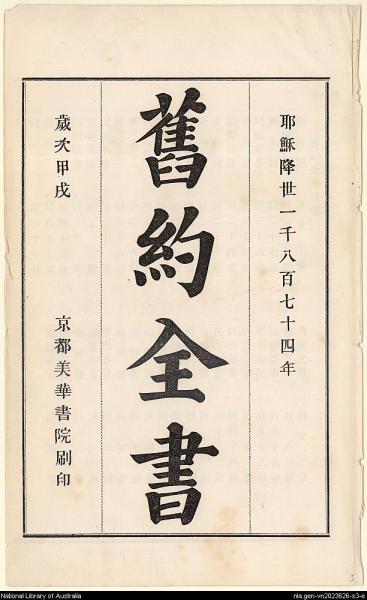 耶穌降世一千八百七十四年
舊約全書
歲次甲戌
京都美華書院刷印
National Library of Australia
nla.gen-vn2023626-s3-e